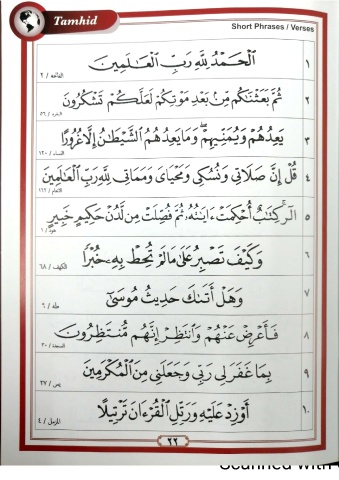 Tamhid
Short Phrases / Verses
١ الْحَمْدُ لِلَّهِ رَبِّ الْعَٰلَمِينَ الفاتحة / ٢
٢ ثُمَّ بَعَثْنَٰكُم مِّنۢ بَعْدِ مَوْتِكُمْ لَعَلَّكُمْ تَشْكُرُونَ البقرة / ٥٦
٣ يَعِدُهُمْ وَيُمَنِّيهِمْ ۖ وَمَا يَعِدُهُمُ الشَّيْطَٰنُ إِلَّا غُرُورًا النساء / ١٢٠
٤ قُلْ إِنَّ صَلَاتِى وَنُسُكِى وَمَحْيَاىَ وَمَمَاتِى لِلَّهِ رَبِّ الْعَٰلَمِينَ الانعام / ١٦٢
٥ الٓر ۚ كِتَٰبٌ أُحْكِمَتْ ءَايَٰتُهُۥ ثُمَّ فُصِّلَتْ مِن لَّدُنْ حَكِيمٍ خَبِيرٍ هود / ١
٦ وَكَيْفَ تَصْبِرُ عَلَىٰ مَا لَمْ تُحِطْ بِهِۦ خُبْرًا الكهف / ٦٨
٧ وَهَلْ أَتَىٰكَ حَدِيثُ مُوسَىٰٓ طه / ٩
٨ فَأَعْرِضْ عَنْهُمْ وَانتَظِرْ إِنَّهُم مُّنتَظِرُونَ السجدة / ٣٠
٩ بِمَا غَفَرَ لِى رَبِّى وَجَعَلَنِى مِنَ الْمُكْرَمِينَ يس / ٢٧
١٠ أَوْ زِدْ عَلَيْهِ وَرَتِّلِ الْقُرْءَانَ تَرْتِيلًا المزمل / ٤
٢٢
Scanned with